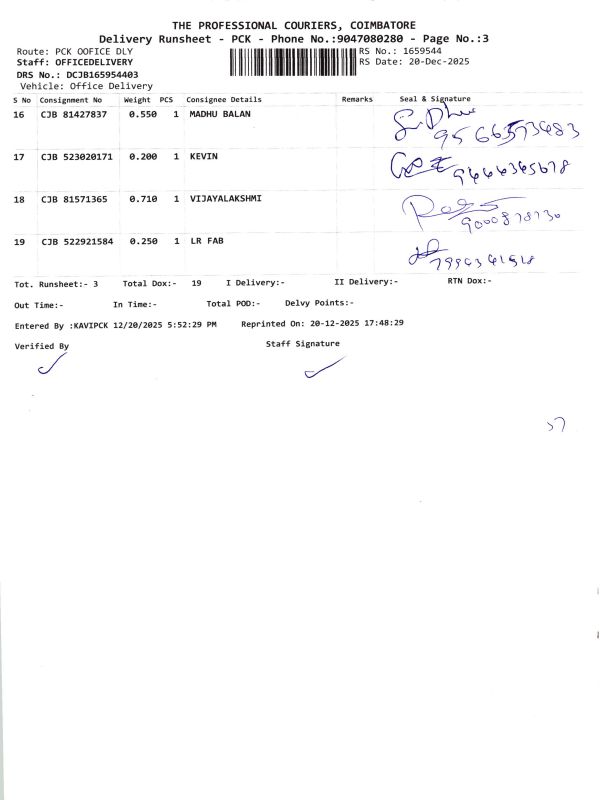 THE PROFESSIONAL COURIERS, COIMBATORE
Delivery Runsheet - PCK - Phone No.:9047080280 - Page No.:3
Route: PCK OOFICE DLY RS No.: 1659544
Staff: OFFICEDELIVERY RS Date: 20-Dec-2025
DRS No.: DCJB165954403
Vehicle: Office Delivery
S No Consignment No Weight PCS Consignee Details Remarks Seal & Signature
16 CJB 81427837 0.550 1 MADHU BALAN
9566373483
17 CJB 523020171 0.200 1 KEVIN
18 CJB 81571365 0.710 1 VIJAYALAKSHMI
19 CJB 522921584 0.250 1 LR FAB
Tot. Runsheet:- 3 Total Dox:- 19 I Delivery:- II Delivery:- RTN Dox:-
Out Time:- In Time:- Total POD:- Delvy Points:-
Entered By :KAVIPCK 12/20/2025 5:52:29 PM Reprinted On: 20-12-2025 17:48:29
Verified By Staff Signature